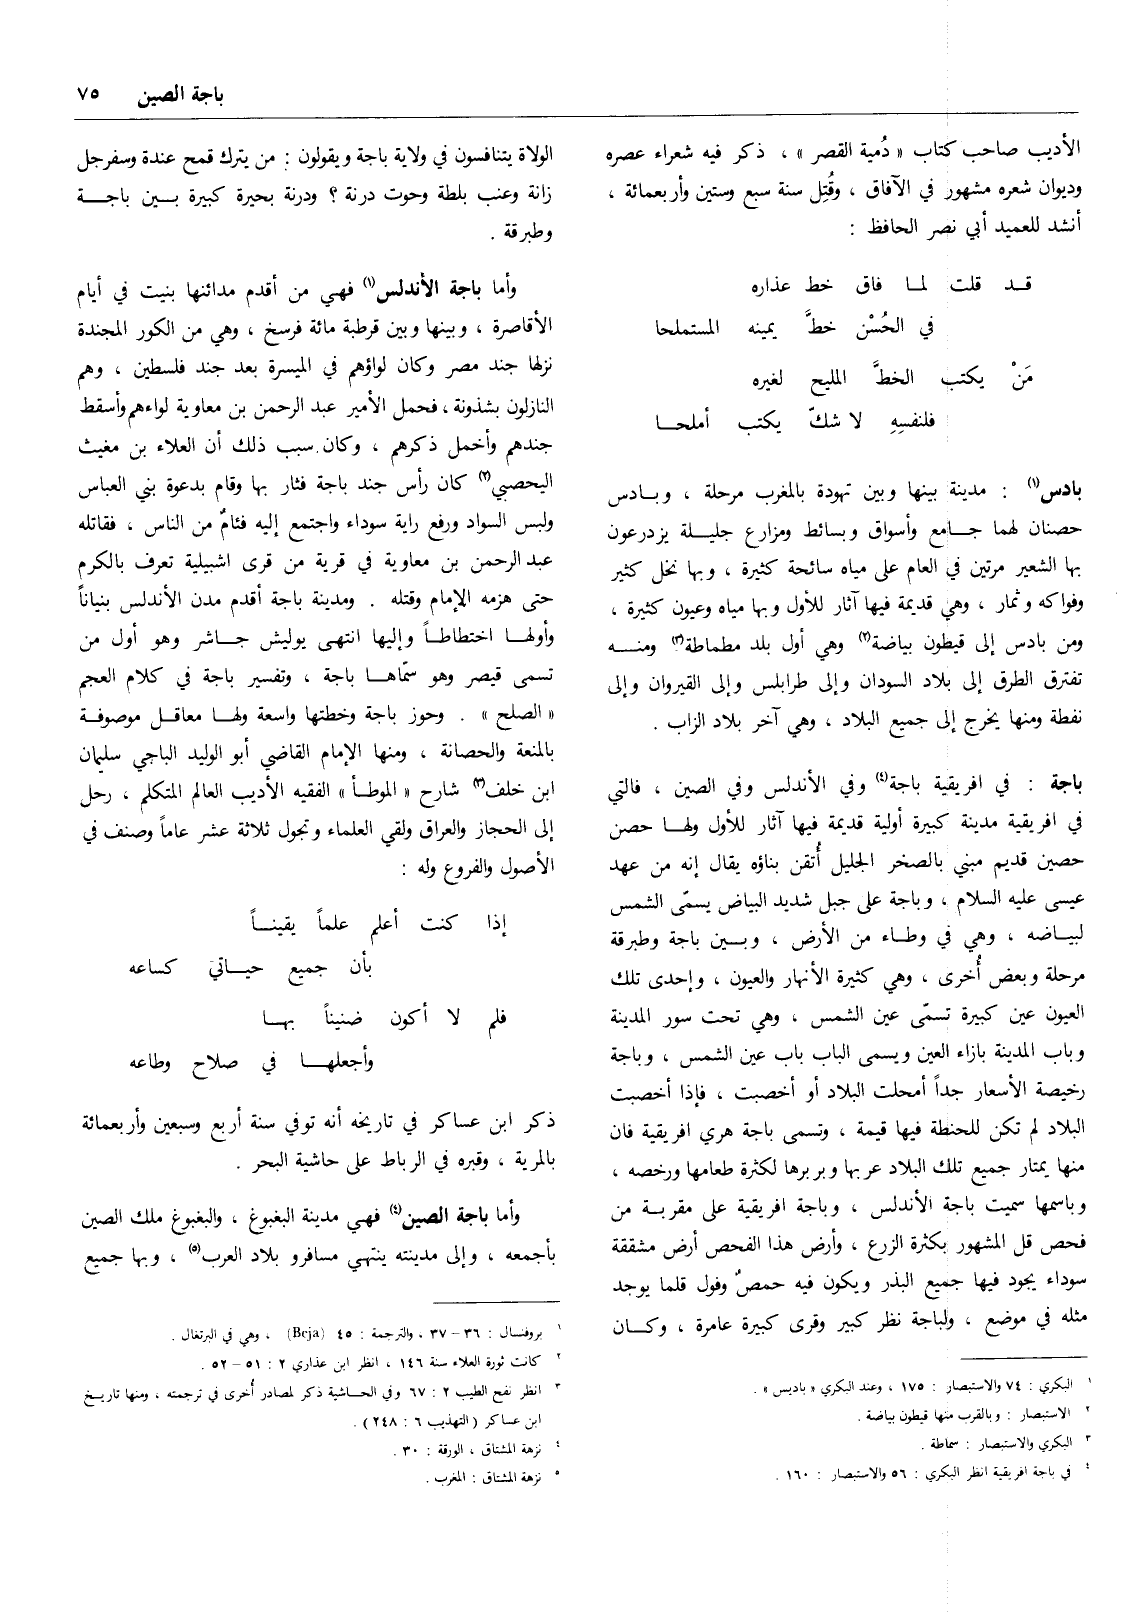 باجة الصين ٧٥
الأديب صاحب كتاب « دُمية القصر » ، ذكر فيه شعراء عصره
وديوان شعره مشهور في الآفاق ، وقُتِل سنة سبع وستين وأربعمائة ،
أنشد للعميد أبي نصر الحافظ :
قـد قلت لمـا فاق خط عذاره
في الحُسْن خطَّ يمينه المستملحا
مَنْ يكتب الخطَّ المليح لغيره
فلنفسِهِ لا شكّ يكتب أملحـا
بادس(١) : مدينة بينها وبين تهودة بالمغرب مرحلة ، وبـادس
حصنان لهما جـامع وأسواق وبسائط ومزارع جليلـة يزدرعون
بها الشعير مرتين في العام على مياه سائحة كثيرة ، وبها نخل كثير
وفواكه وثمار ، وهي قديمة فيها آثار للأول وبها مياه وعيون كثيرة ،
ومن بادس إلى قيطون بياضة(٢) وهي أول بلد مطماطة(٣) ومنـه
تفترق الطرق إلى بلاد السودان وإلى طرابلس وإلى القيروان وإلى
نفطة ومنها يخرج إلى جميع البلاد ، وهي آخر بلاد الزاب .
باجة : في افريقية باجة(٤) وفي الأندلس وفي الصين ، فالتي
في افريقية مدينة كبيرة أولية قديمة فيها آثار للأول ولهـا حصن
حصين قديم مبني بالصخر الجليل أُتقن بناؤه يقال إنه من عهد
عيسى عليه السلام ، وباجة على جبل شديد البياض يسمّى الشمس
لبيـاضه ، وهي في وطـاء من الأرض ، وبـين باجة وطبرقة
مرحلة وبعض أُخرى ، وهي كثيرة الأنهار والعيون ، وإحدى تلك
العيون عين كبيرة تسمّى عين الشمس ، وهي تحت سور المدينة
وباب المدينة بازاء العين ويسمى الباب باب عين الشمس ، وباجة
رخيصة الأسعار جداً أمحلت البلاد أو أخصبت ، فإذا أخصبت
البلاد لم تكن للحنطة فيها قيمة ، وتسمى باجة هري افريقية فان
منها يمتار جميع تلك البلاد عربها وبربرها لكثرة طعامها ورخصه ،
وباسمها سميت باجة الأندلس ، وباجة افريقية على مقربـة من
فحص قل المشهور بكثرة الزرع ، وأرض هذا الفحص أرض مشققة
سوداء يجود فيها جميع البذر ويكون فيه حمصٌ وفول قلما يوجد
مثله في موضع ، ولباجة نظر كبير وقرى كبيرة عامرة ، وكـان
١ البكري : ٧٤ والاستبصار : ١٧٥ ، وعند البكري « باديس » .
٢ الاستبصار : وبالقرب منها قيطون بياضة .
٣ البكري والاستبصار : سماطة .
٤ في باجة افريقية انظر البكري : ٥٦ والاستبصار : ١٦٠ .
الولاة يتنافسون في ولاية باجة ويقولون : من يترك قمح عندة وسفرجل
زانة وعنب بلطة وحوت درنة ؟ ودرنة بحيرة كبيرة بـين باجـة
وطبرقة .
وأما باجة الأندلس(١) فهي من أقدم مدائنها بنيت في أيام
الأقاصرة ، وبينها وبين قرطبة مائة فرسخ ، وهي من الكور المجندة
نزلها جند مصر وكان لواؤهم في الميسرة بعد جند فلسطين ، وهم
النازلون بشذونة ، فحمل الأمير عبد الرحمن بن معاوية لواءهم وأسقط
جندهم وأخمل ذكرهم ، وكان سبب ذلك أن العلاء بن مغيث
اليحصبي(٢) كان رأس جند باجة فثار بها وقام بدعوة بني العباس
ولبس السواد ورفع راية سوداء واجتمع إليه فئامٌ من الناس ، فقاتله
عبد الرحمن بن معاوية في قرية من قرى اشبيلية تعرف بالكرم
حتى هزمه الإمام وقتله . ومدينة باجة أقدم مدن الأندلس بنياناً
وأولهـا اختطاطـاً وإليها انتهى يوليش جـاشر وهو أول من
تسمى قيصر وهو سمّاهـا باجة ، وتفسير باجة في كلام العجم
« الصلح » . وحوز باجة وخطتها واسعة ولهـا معاقـل موصوفـة
بالمنعة والحصانة ، ومنها الإمام القاضي أبو الوليد الباجي سليمان
ابن خلف(٣) شارح « الموطـأ » الفقيه الأديب العالم المتكلم ، رحل
إلى الحجاز والعراق ولقي العلماء وتجول ثلاثة عشر عاماً وصنف في
الأصول والفروع وله :
إذا كنت أعلم علماً يقينـاً
بأن جميع حيـاتي كساعه
فلم لا أكون ضنيناً بهـا
وأجعلهـا في صلاح وطاعه
ذكر ابن عساكر في تاريخه أنه توفي سنة أربع وسبعين وأربعمائة
بالمرية ، وقبره في الرباط على حاشية البحر .
وأما باجة الصين(٤) فهي مدينة البغبوغ ، والبغبوغ ملك الصين
بأجمعه ، وإلى مدينته ينتهي مسافرو بلاد العرب(٥) ، وبها جميع
١ بروفنسال : ٣٦ – ٣٧ ، والترجمة : ٤٥ (Beja) ، وهي في البرتغال .
٢ كانت ثورة العلاء سنة ١٤٦ ، انظر ابن عذاري ٢ : ٥١ – ٥٢ .
٣ انظر نفح الطيب ٢ : ٦٧ وفي الحـاشية ذكر لمصادر أُخرى في ترجمته ، ومنها تاريـخ
ابن عساكر ( التهذيب ٦ : ٢٤٨ ) .
٤ نزهة المشتاق ، الورقة : ٣٠ .
٥ نزهة المشتاق : المغرب .